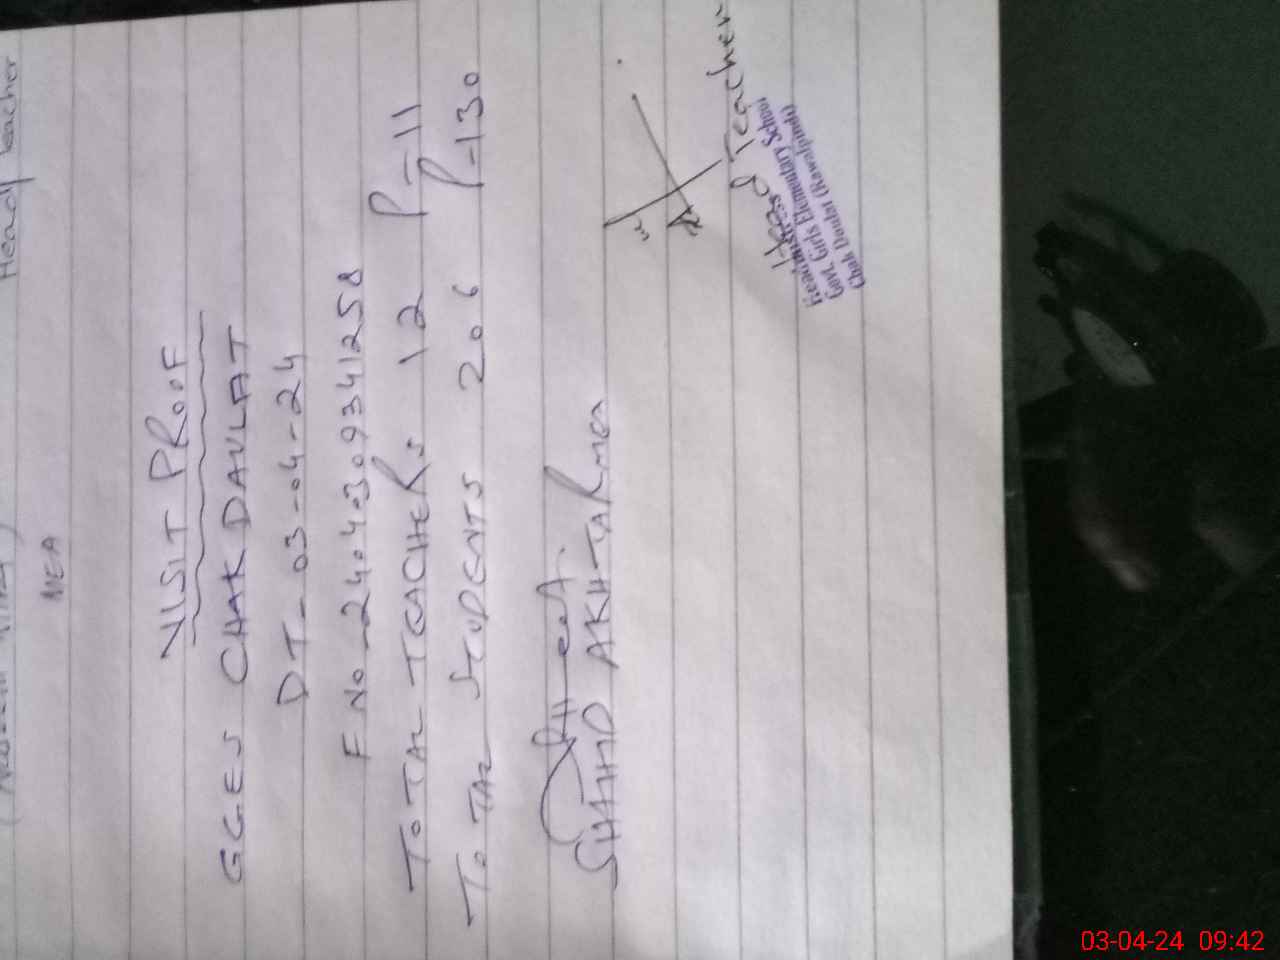 Head teacher
MEA
VISIT PROOF
GGES CHAK DAULAT
DT-03-04-24
F No-2404309341258
TOTAL TEACHERS 12 P-11
TOTAL STUDENTS 206 P-130
SHAHD AKHTAR MEA
Head Teacher
Headmistress
Govt. Girls Elementary School
Chak Daulat (Rawalpindi)
03-04-24 09:42